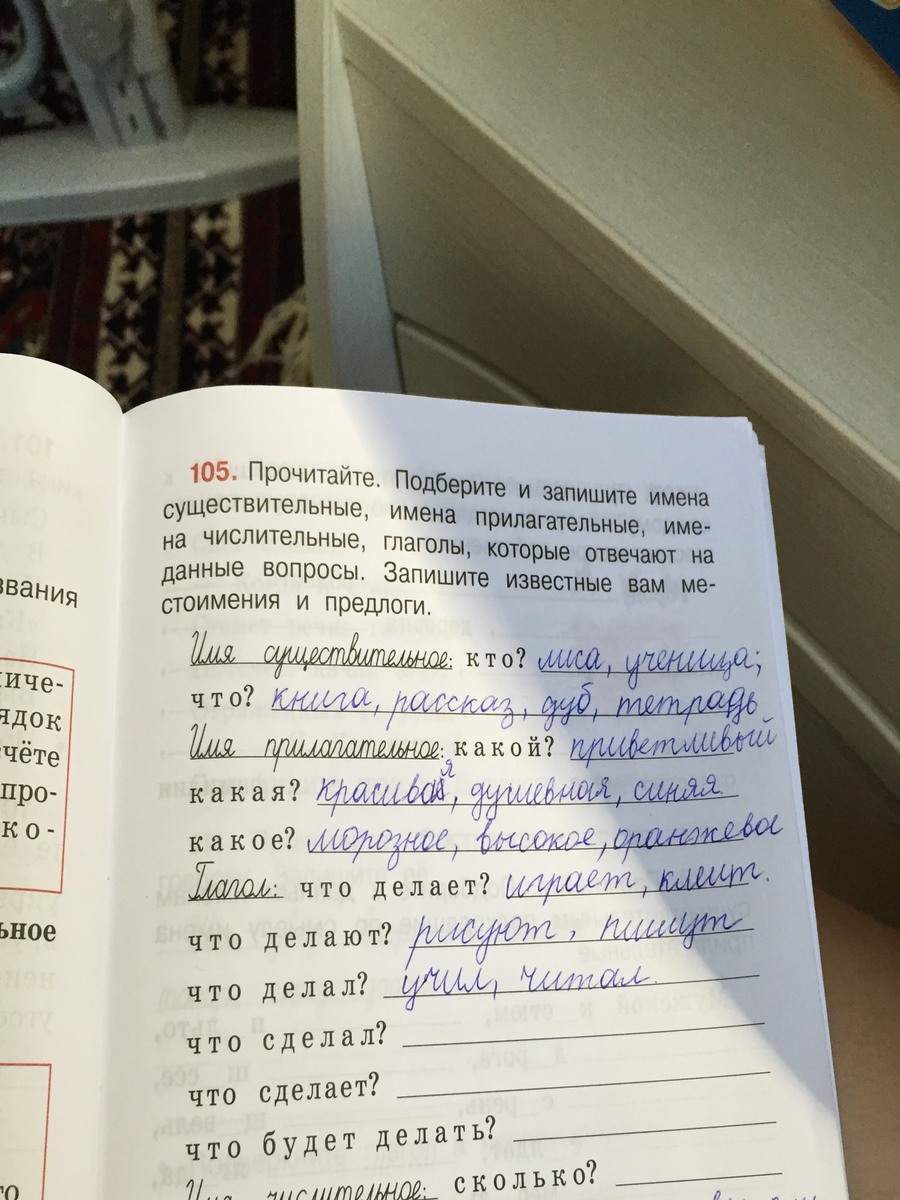 звания
ниче-
ядок
счёте
про-
ко-
ьное
105. Прочитайте. Подберите и запишите имена
существительные, имена прилагательные, име-
на числительные, глаголы, которые отвечают на
данные вопросы. Запишите известные вам ме-
стоимения и предлоги.
Имя существительное: кто? лиса, ученица;
что? книга, рассказ, дуб, тетрадь
Имя прилагательное: какой? приветливый
какая? красивая, душевная, синяя
какое? морозное, высокое, оранжевое
Глагол: что делает? играет, клеит.
что делают? рисуют, пишут
что делал? учил, читал.
что сделал?
что сделает?
что будет делать?
Имя числительное: сколько?